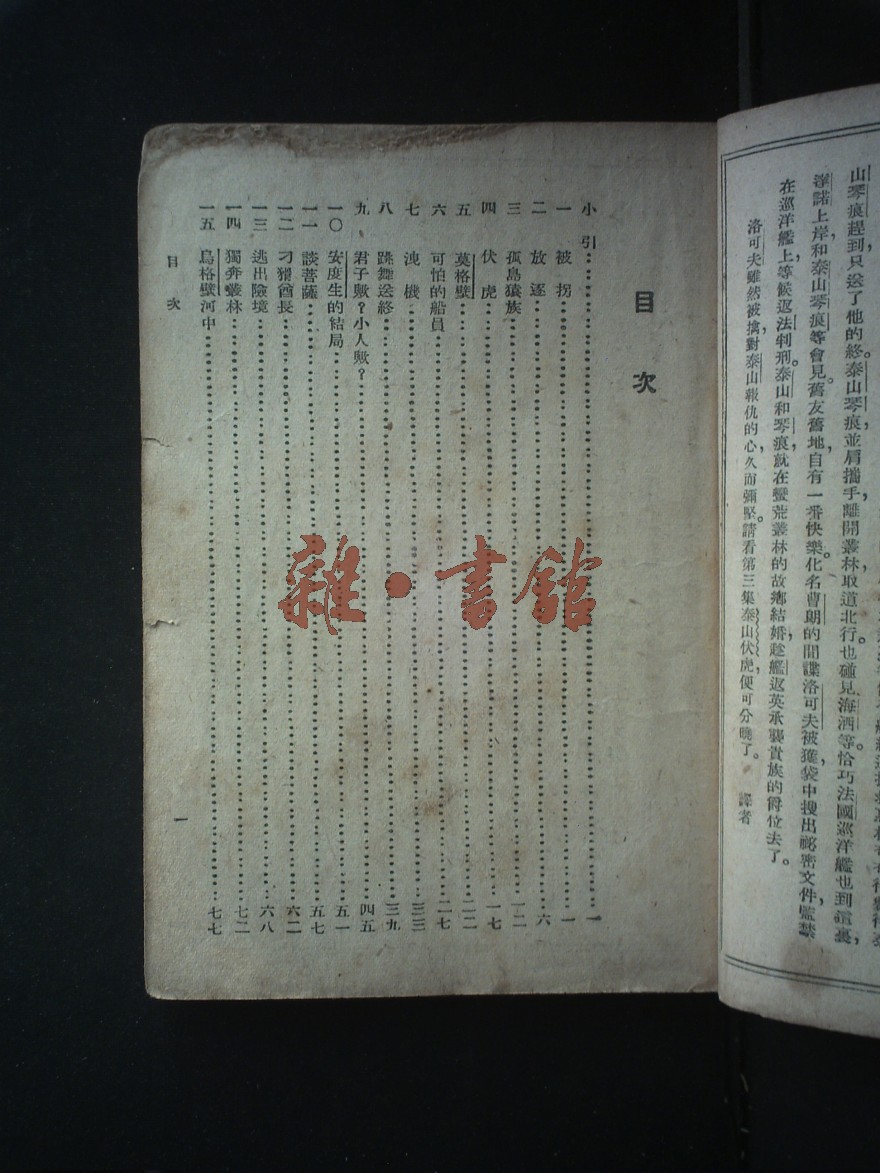 山琴痕趕到只送了他的終。泰山琴痕並肩攜手，離開叢林取道北行。也碰見海酒等。恰巧法國巡洋艦也到這裏，
達諾上岸和泰山琴痕等會見。舊友舊地，自有一番快樂。化名曹朗的間諜洛可夫被獲，袋中搜出祕密文件，監禁
在巡洋艦上，等候返法判刑。泰山和琴痕就在蠻荒叢林的故鄉結婚，趁艦返英承襲貴族的爵位去了。
洛可夫雖然被擒，對泰山報仇的心，久而彌堅。請看第三集泰山伏虎，便可分曉了。 譯者
目次
小引 一
一 被拐 一
二 放逐 六
三 孤島猿族 一二
四 伏虎 一七
五 莫格壁 二二
六 可怕的船員 二七
七 洩機 三三
八 跳舞送終 三九
九 君子歟？小人歟？ 四五
一〇 安度生的結局 五一
一一 談菩薩 五七
一二 刁猾酋長 六二
一三 逃出險境 六八
一四 獨奔叢林 七二
一五 烏格壁河中 七七
目次
一
雜·書館